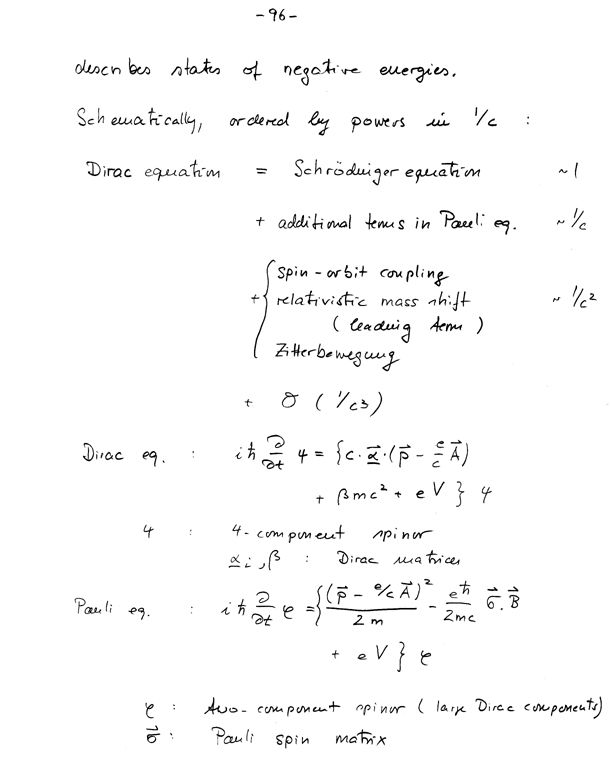 -96-
describes states of negative energies.
Schematically, ordered by powers in 1/c :
Dirac equation = Schrödinger equation ~1
+ additional terms in Pauli eq. ~ 1/c
+ { spin-orbit coupling
relativistic mass shift ~ 1/c²
(leading term)
Zitterbewegung
+ O (1/c³)
Dirac eq. : iħ ∂/∂t ψ = {c·α⃗·(p⃗ - e/c A⃗)
+ βmc² + eV } ψ
ψ : 4-component spinor
α_i, β : Dirac matrices
Pauli eq. : iħ ∂/∂t φ = {(p⃗ - e/c A⃗)²/2m - eħ/2mc σ⃗·B⃗
+ eV } φ
φ : two-component spinor (large Dirac components)
σ⃗ : Pauli spin matrix